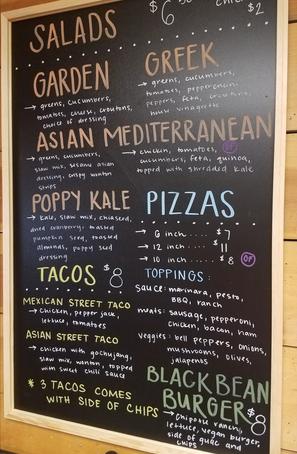 SALADS
$6
$2
GARDEN
→ greens, cucumbers,
tomatoes, cheese, croutons,
choice of dressing
GREEK
→ greens, cucumbers,
tomatoes, pepperoncini,
peppers, feta, croutons,
house vinaigrette
ASIAN
→ greens, cucumbers,
slaw mix, sesame asian
dressing, crispy wonton
strips
MEDITERRANEAN
→ chicken, tomatoes, GF
cucumbers, feta, quinoa,
topped with shredded kale
POPPY KALE
→ kale, slaw mix, chiaseed,
dried cranberry, toasted
pumpkin seed, toasted
almonds, poppy seed
dressing
PIZZAS
→ 6 inch .... $7
→ 12 inch .... $11
→ 10 inch .... $8 GF
TOPPINGS:
sauce: marinara, pesto,
BBQ, ranch
meats: sausage, pepperoni,
chicken, bacon, ham
veggies: bell peppers, onions,
mushrooms, olives,
jalapenos
TACOS $8
MEXICAN STREET TACO
→ chicken, pepper jack,
lettuce, tomatoes
ASIAN STREET TACO
→ chicken with gochujang,
slaw mix, wonton, topped
with sweet chili sauce
* 3 TACOS COMES
WITH SIDE OF CHIPS
BLACK BEAN
BURGER $8
→ chipotle ranch,
lettuce, vegan burger,
side of guac and
chips